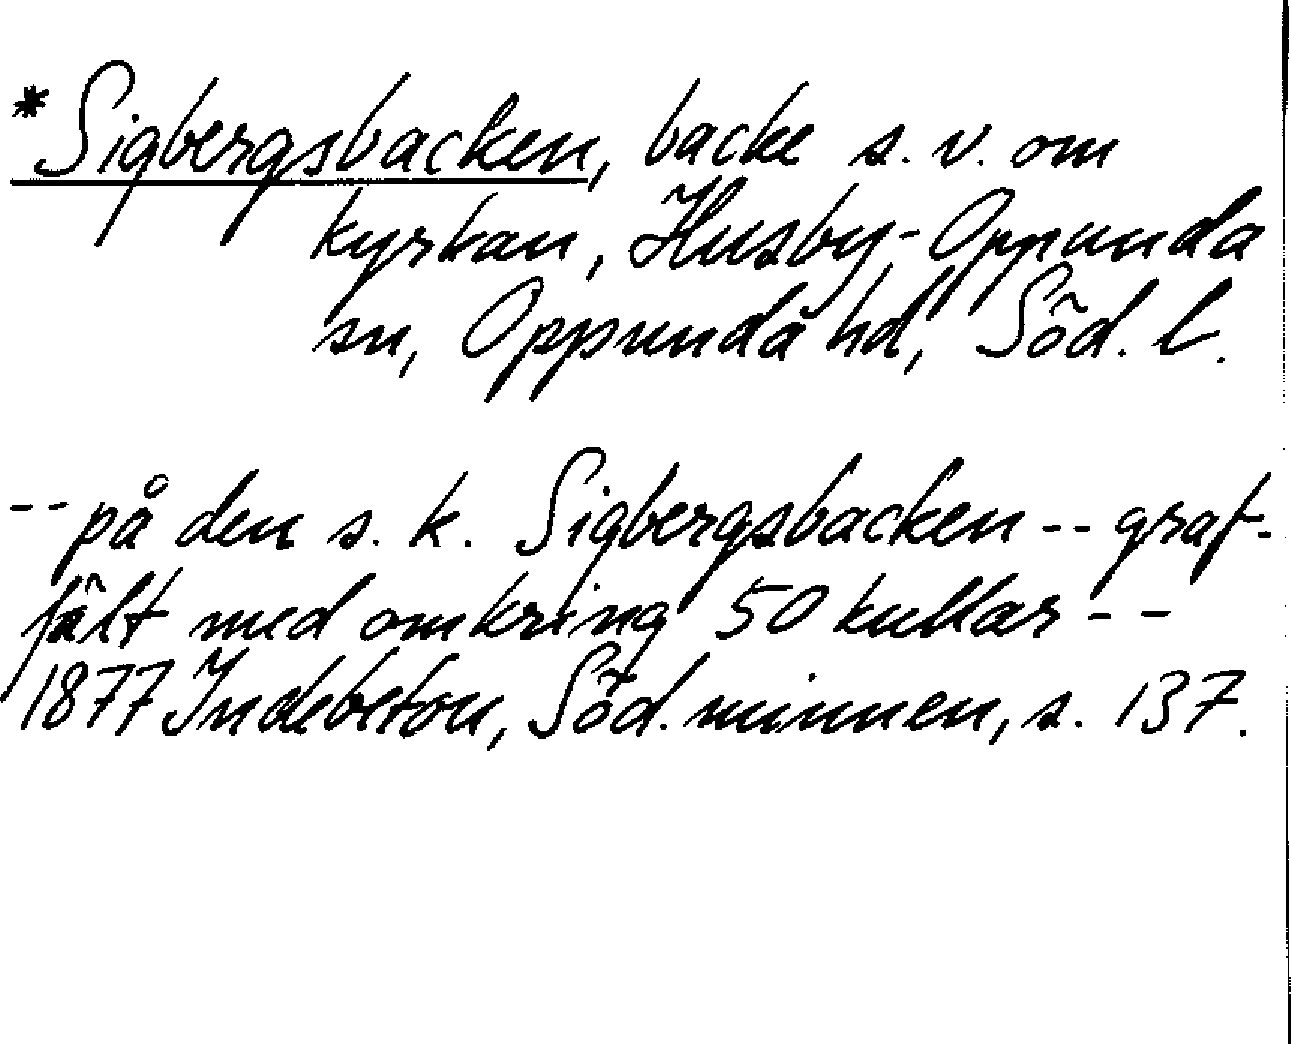 *Sigbergsbacken, backe s. v. om
kyrkan, Husby-Oppunda
sn, Oppunda hd, Söd. l.
-- på den s. k. Sigbergsbacken -- graf-
fält med omkring 50 kullar --
1877 Indebetou, Söd. minnen, s. 137.